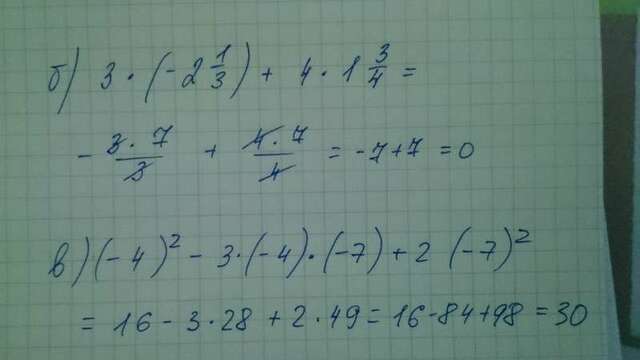 б) 3 · (-2 1/3) + 4 · 1 3/4 =
- 3 · 7/3 + 4 · 7/4 = -7+7 = 0
в) (-4)² - 3·(-4)·(-7) + 2 (-7)²
= 16 - 3·28 + 2·49 = 16-84+98 = 30